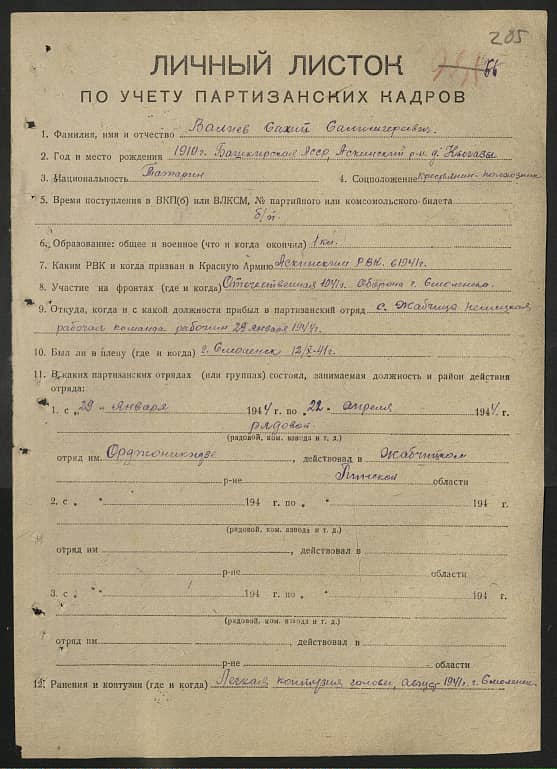 205
66
ЛИЧНЫЙ ЛИСТОК
ПО УЧЕТУ ПАРТИЗАНСКИХ КАДРОВ
1. Фамилия, имя и отчество Валиев Сахий
2. Год и место рождения 1910 г. Башкирская Асср, Аскинский р-н д.
3. Национальность Татарин 4. Соцположение крестьянин-колхозник
5. Время поступления в ВКП(б) или ВЛКСМ, № партийного или комсомольского билета
б/п.
6. Образование: общее и военное (что и когда окончил) 1 кл.
7. Каким РВК и когда призван в Красную Армию Аскинским РВК. в 1941 г.
8. Участие на фронтах (где и когда) Отечественная 1941 г. оборона г. Смоленска.
9. Откуда, когда и с какой должности прибыл в партизанский отряд с. Жабчицы немецкая
рабочая команда рабочим 29 января 1944 г.
10. Был ли в плену (где и когда) г. Смоленск 12/X-41 г.
11. В каких партизанских отрядах (или группах) состоял, занимаемая должность и район действия
отряда:
1. с „29" января 1944 г. по „22" апреля 1944 г.
рядовой
(рядовой, ком. взвода и т. д.)
отряд им. Орджоникидзе, действовал в Жабчицком
р-не Пинской области
2. с „ " 194 г. по „ " 194 г.
(рядовой, ком. взвода и т. д.)
отряд им , действовал в
р-не области
3. с „ " 194 г. по „ " 194 г.
(рядовой, ком. взвода и т. д.)
отряд им. , действовал в
р-не области
12. Ранения и контузии (где и когда) Легкая контузия головы, август 1941 г. г. Смоленск.